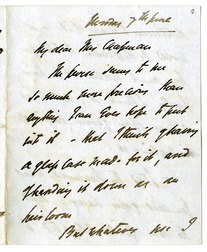 2.
My dear Mrs Chapman
The purse seems to me
so much more precious than
anything I can ever hope to put
into it – that I think of having
a glass case made for it, and
of handing it down as an
heirloom
But whatever use I